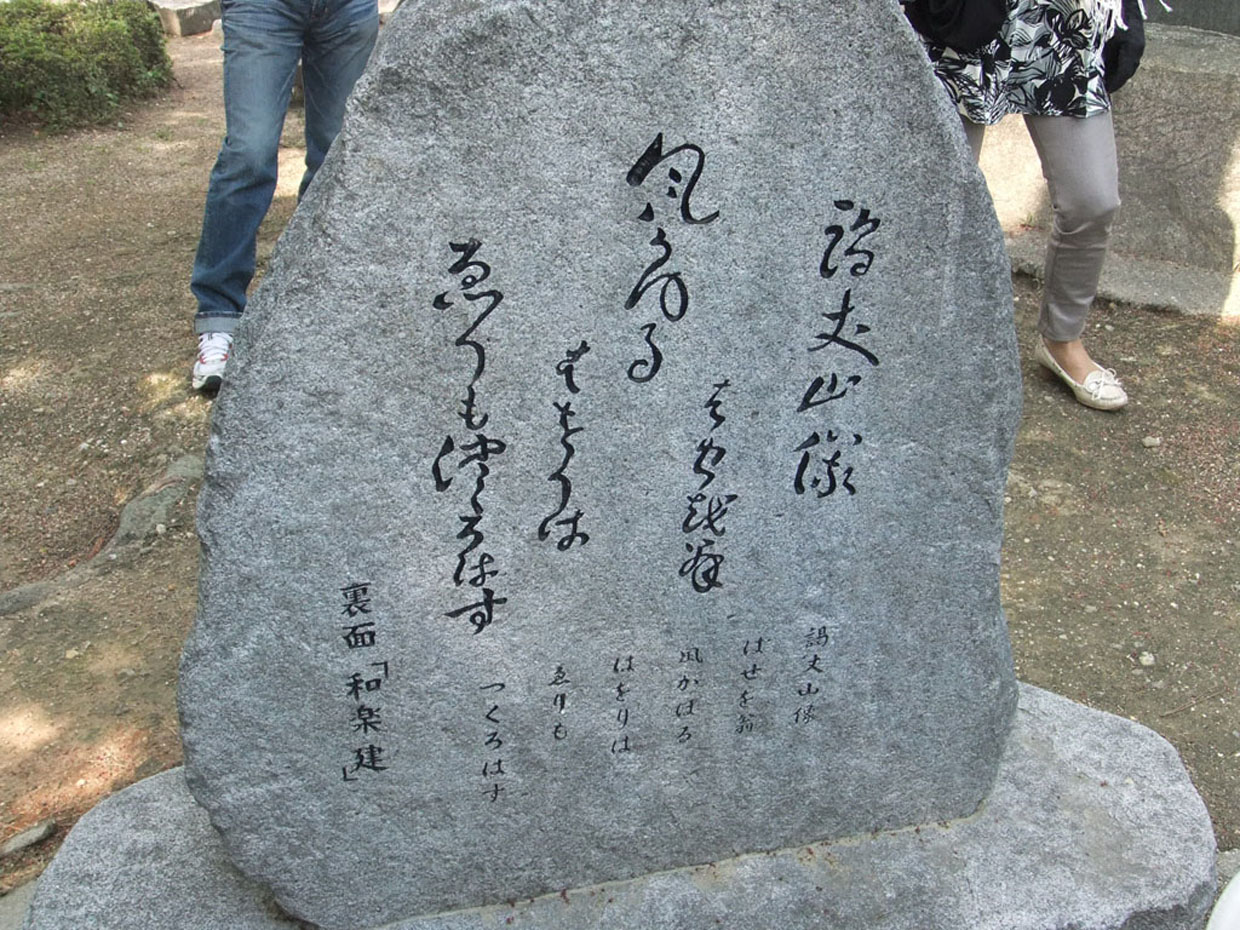 謁丈山像
はせ越翁
風かほる
はをりは
ゑりも徒くろはす
謁丈山像
ばせを翁
風かほる
はをりは
ゑりも
つくろはす
裏面「和楽建」